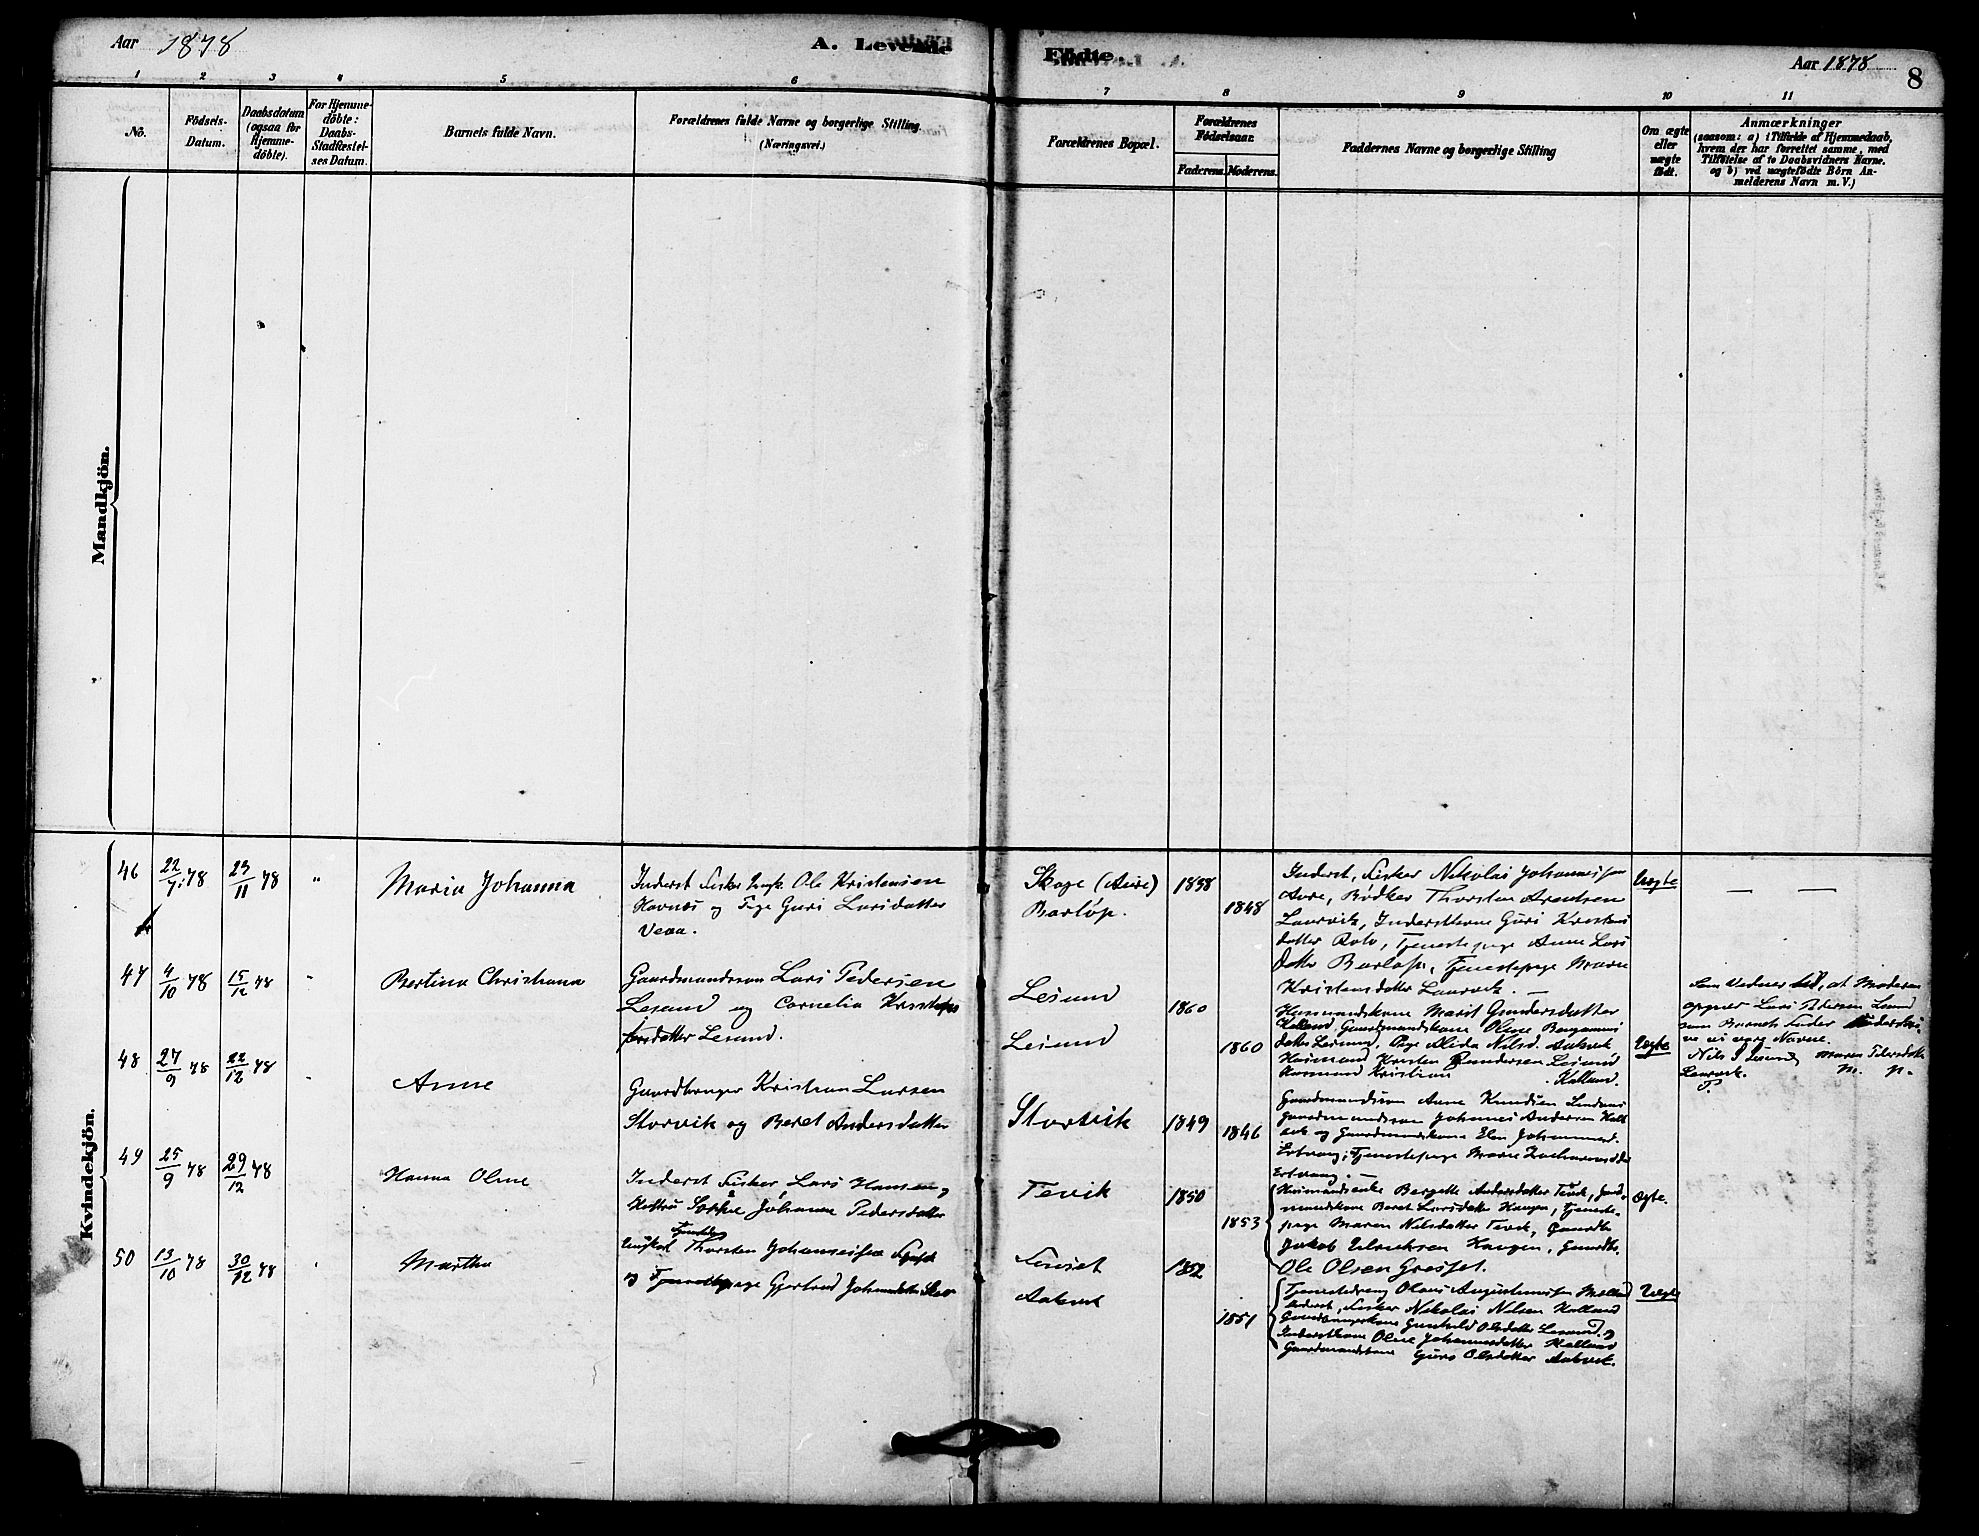 Aar 1878
A. Levende
Födte.
Aar 1878
8
1 2 3 4 5 6 7 8 9 10 11
No.
Födsels-
Datum.
Daabsdatum
(ogsaa for
Hjemme-
döbte).
For Hjemme-
döbte:
Daabs-
Stadfæstel-
ses Datum.
Barnets fulde Navn.
Forældrenes fulde Navne og borgerlige Stilling.
(Næringsvei.)
Forældrenes Bopæl.
Forældrenes
Födselsaar.
Faderens. Moderens.
Faddernes Navne og borgerlige Stilling
Om ægte
eller
uægte
födt.
Anmærkninger
(saasom: a) i Tilfælde af Hjemmedaab,
hvem der har forrettet samme, med
Tilföielse af to Daabsvidners Navne.
og b) ved uægtefödte Börn An-
melderens Navn m. V.)
Mandkjön.
Kvindekjön.
46
22/7 78
23/11 78
"
Maria Johanna
Inderst Fisker Ole Kristensen
Havnes og Pige Guri Larsdatter
Veaa.
Skage (Aure)
Barlöp.
1858
1848
Inderst, Fisker Nikolai Johannessen
Aure, Bödker Thorsten Arentsen
Laurvik, Inderstkone Guri Kristens
datter Rolv, Tjenestepige Anne Lars
datter Barlöp, Tjenestepige Maren
Kristensdatter Laurvik. —
Uægte
— —
47
4/10 78
15/12 78
"
Bertina Christiana
Gaardmandssøn Lars Pedersen
Lesund og Cornelia Kristof
fersdatter Lesund.
Lesund
Lesund
1860
1860
Husmandskone Marit Gundersdatter
Kalland, Gaardmandskone Oline Benjamins
datter Lesund, Pige Alida Nilsd. Aakvik
Husmand Kristen Lesund
Husmand Kristian Kalland.
Uægte
Som Vidner til, at Moderen
opgiver Lars Pedersen Lesund
som Barnets Fader
vi vore Navne.
Nils Lesund Maren Pedersdatter
Laurvik. m. p.
48
27/9 78
22/12 78
Anne
Gaardbruger Kristian Larsen
Storvik og Beret Andersdatter
Storvik
1849
1846
Gaardmandssøn Arne Knudsen
Gaardmandssøn Johannes Andersen
og Gaardmandskone Elen Johannesd.
Ertvaag, Tjenestepige Maren
Ertvaag. —
49
25/9 78
29/12 78
Hanna Oline
Inderst Fisker Lars Hansen og
Hustru Johanna Pedersdatter
Tevik
1850
1853
Husmandsenke Bergette Andersdatter Tevik,
mandskone Beret Larsdatter Haugen, Tjeneste-
pige Maren Nilsdatter Tevik, Gaardbr.
Jakob Ulrichsen Haugen, Gaardbr.
Ole Olsen Gresset.
Ægte.
50
13/10 78
30/12 78
Martha
Ungkarl Thorsten Johannessen
og Tjenestepige Gjertrud Johannesdatter
Aakvik
1852
1851
Tjenestedreng Olaus Augustinussen
Inderst, Fisker Nikolai Nilsen Kalland
Gaardbrugerkone Gunhild Olsdatter Lesund og
Inderstkone Oline Johannesdatter Kalland
Gaardmandskone Guro Olsdatter Aakvik.
Uægte